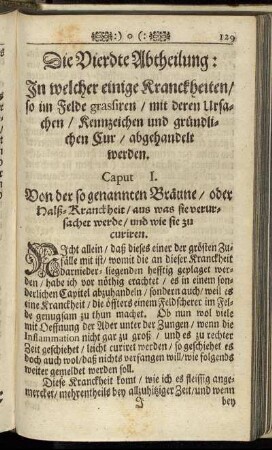 :) o (: 129
Die Vierdte Abtheilung:
In welcher einige Kranckheiten/
so im Felde grassiren / mit deren Ursa-
chen / Kennzeichen und gründli-
chen Cur / abgehandelt
werden.
Caput I.
Von der so genannten Bräune / oder
Halß-Kranckheit / aus was sie verur-
sachet werde / und wie sie zu
curiren.
Nicht allein / daß dieses einer der grösten Zu-
fälle mit ist / womit die an dieser Kranckheit
darnieder-liegenden hefftig geplaget wer-
den / habe ich vor nöthig erachtet / es in einem son-
derlichen Capitel abzuhandeln / sondern auch / weil es
eine Kranckheit / die öffters einem Feldscherer im Fel-
de genugsam zu thun machet. Ob nun wol viele
mit Oeffnung der Ader unter der Zungen / wenn die
Inflammation nicht gar zu groß / und es zu rechter
Zeit geschiehet / leicht curiret werden / so geschiehet es
doch auch wol / daß nichts verfangen will / wie folgends
weiter gemeldet werden soll.
Diese Kranckheit komt / wie ich es fleissig ange-
mercket / mehrentheils bey allzuhitziger Zeit / und wenn
J bey